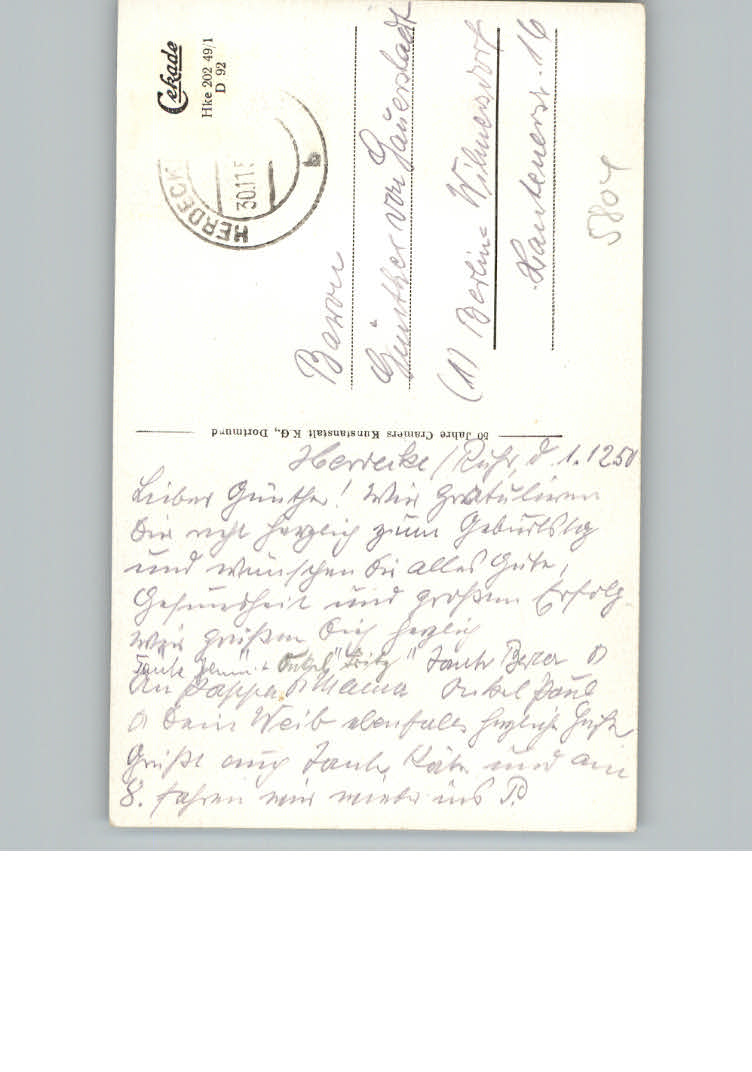 Cekade
Hke 202 49/1
D 92
HERDECK
30.11.5
b
Baron
Günther von Gauerstadt
(1) Berlin= Wilmersdorf
Xantenerstr. 16
5804
50 Jahre Cramers Kunstanstalt K.G., Dortmund
Herdecke/Ruhr, d. 1.1250
Lieber Günther! Wir gratulieren
Dir recht herzlich zum Geburtstag
und wünschen Dir alles Gute,
Gesundheit und großen Erfolg
Wir grüßen Dich herzlich
Tante + Onkel "Fritz" Tante
An Pappa Mama Onkel Paul
Dein Weib ebenfalls herzliche
Grüßt auch Tante Käte und am
8. fahren wir wieder ins